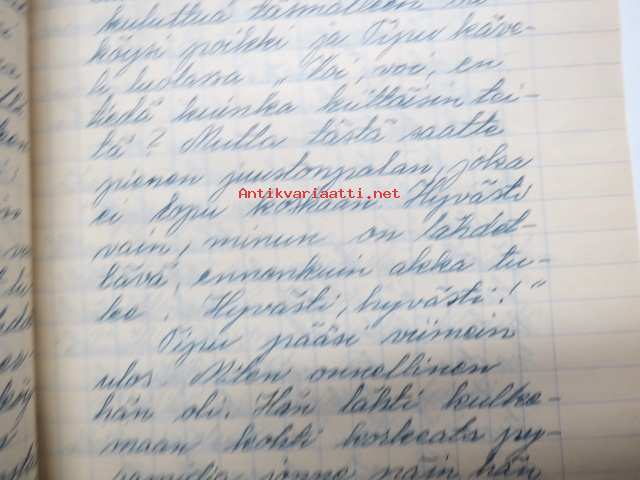 kuluttua täsmälleen
köysi poikki ja Tipu käve-
li luolassa „Voi, voi, en
tiedä kuinka kiittäisin tei-
tä? Mutta tästä saatte
pienen juustonpalan, joka
Antikvariaatti.net
ei lopu koskaan. Hyvästi
vain, minun on lähdet-
tävä, ennenkuin akka tu-
lee. Hyvästi, hyvästi!"
Tipu pääsi viimein
ulos. Miten onnellinen
hän oli. Hän lähti kulke-
maan kohti korkeata py-
ramidia, jonne näin hän